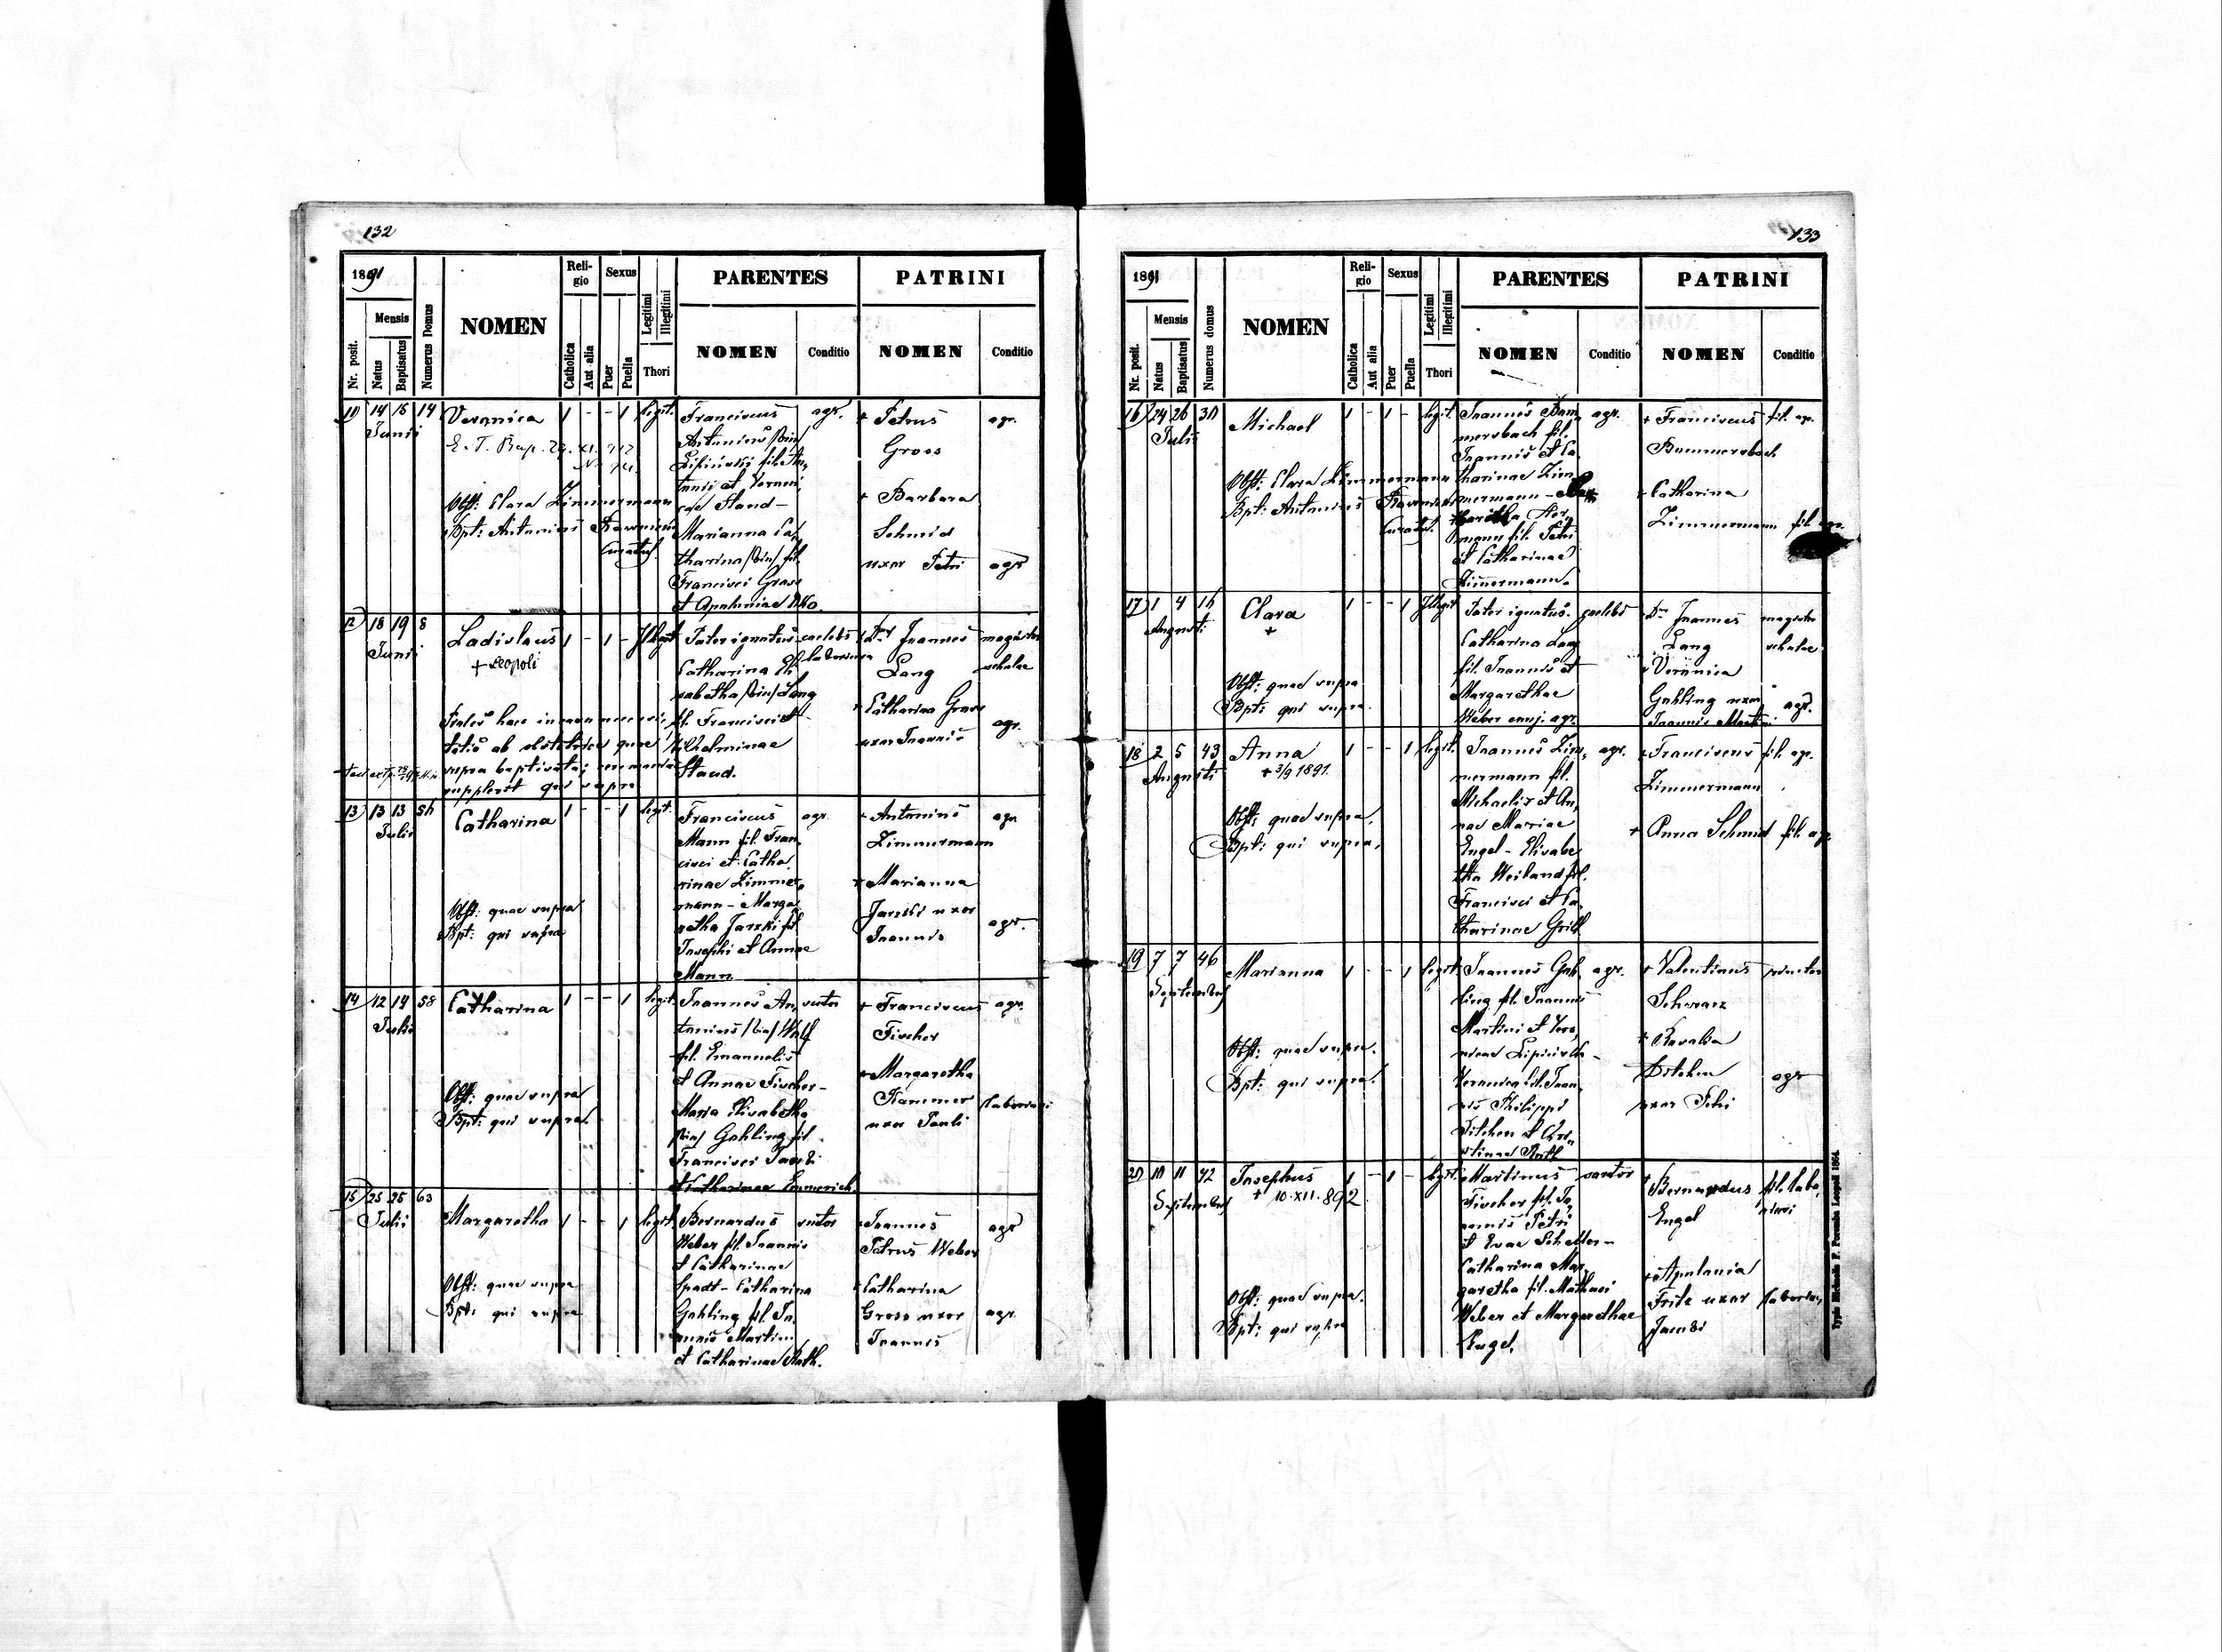 132
1891
Nr. posit.
Mensis
Natus
Baptisatus
Numerus Domus
NOMEN
Reli-
gio
Catholica
Aut alia
Sexus
Puer
Puella
Legitimi
Illegitimi
Thori
PARENTES
NOMEN
Conditio
PATRINI
NOMEN
Conditio
11 14 15 14
Junii
Veronica
1 - - 1 legit.
Obst: Clara Zimmermann
Bpt: Antonius
Franciscus
Antonius /bin/
Lipiński fil. An-
tonii et Veroni,
cae Staud -
Marianna Ca,
tharina /bin/ fil.
Francisci Gross
et Apoloniae
agr.
+ Petrus
Gross
+ Barbara
Schmid
uxor Petri
agr.
agr
12 18 19 8
Junii
Ladislaus
+ Leopoli
1 - 1 - Illegit.
supra baptisata;
supplevit qui supra
Pater ignotus
Catharina Eli
sabetha /bin/ Lang
fil. Francisci et
Wilhelminae
Staud.
caelebs
Joannes
Lang
+ Catharina Gross
uxor Joannis
magister
scholae
agr.
13 13 13 56
Julii
Catharina
1 - - 1 legit.
Obst: quae supra
Bpt: qui supra
Franciscus
Mann fil. Fran,
cisci et Catha,
rinae Zimmer,
mann - Marga
retha Jarzki fil.
Josephi et Annae
Mann
agr.
+ Antonius
Zimmermann
+ Marianna
Jarzki uxor
Joannis
agr.
agr.
14 12 14 58
Julii
Catharina
1 - - 1 legit.
Obst: quae supra
Bpt: qui supra.
Joannes An,
tonius /bin/ Wolf
fil. Emanuelis
et Annae Fischer -
Maria Elisabetha
/bin/ Gahling fil
Francisci Jacobi
et Catharinae Emmerich.
+ Franciscus
Fischer
+ Margaretha
uxor Pauli
agr.
15 25 25 63
Julii
Margaretha
1 - - 1 legit.
Obst: quae supra
Bpt: qui supra
Bernardus
Weber fil. Joannis
et Catharinae
Spadt - Catharina
Gahling fil. Jo,
annis Martini
et Catharinae Roth.
+ Joannes
Petrus Weber
+ Catharina
Gross uxor
Joannis
agr
agr.
133
1891
Nr. posit.
Mensis
Natus
Baptisatus
Numerus domus
NOMEN
Reli-
gio
Catholica
Aut alia
Sexus
Puer
Puella
Legitimi
Illegitimi
Thori
PARENTES
NOMEN
Conditio
PATRINI
NOMEN
Conditio
16 24 26 30
Julii
Michael
1 - 1 - legit.
Obst: Clara Zimmermann
Bpt: Antonius
Joannes Bum,
mersbach fil.
Joannis et Ca
tharinae Zim,
mermann -
mann fil. Petri
et Catharinae
Zimmermann.
agr.
+ Franciscus
Bummersbach
+ Catharina
Zimmermann
fil. agr.
fil. agr.
17 1 4 16
Augusti
Clara
+
1 - - 1 Illegit
Obst: quae supra
Bpt: qui supra.
Pater ignotus.
Catharina Lang
fil. Joannis et
Margarethae
Weber conj. agr.
caelebs
Joannes
Lang
+ Veronica
Gahling uxor
Joannis Martini
magister
scholae
agr.
18 2 5 43
Augusti
Anna
+ 3/9 1891.
1 - - 1 legit.
Obst: quae supra.
Bpt: qui supra.
Joannes Zim,
mermann fil.
Michaelis et An,
nae Mariae
Engel - Elisabe
tha Weiland fil.
Francisci et Ca,
tharinae Grill.
agr.
+ Franciscus
Zimmermann
+ Anna Schmid
fil. agr.
fil. agr.
19 7 7 46
Septembris
Marianna
1 - - 1 legit.
Obst: quae supra.
Bpt: qui supra.
Joannes Gah,
ling fil. Joannis
Martini et Vero,
nicae Lipiński -
Veronica fil. Joan,
nis Philippi
Ditchen et Chri,
stinae Roth
agr.
+ Valentinus
Schwarz
+ Rosalia
Ditchen
uxor Petri
agr
20 10 11 42
Septembris
Josephus
+ 10.XII.892
1 - 1 - legit.
Obst: quae supra.
Bpt: qui supra
Martinus
Fischer fil. Jo,
annis Petri
et Evae Scheller -
Catharina Mar,
garetha fil. Mathaei
Weber et Margarethae
Engel.
sartor
+ Bernardus
Engel
+ Apolonia
Fritz uxor
Jacobi
Typis Michaelis F. Poremba Leopoli 1864.